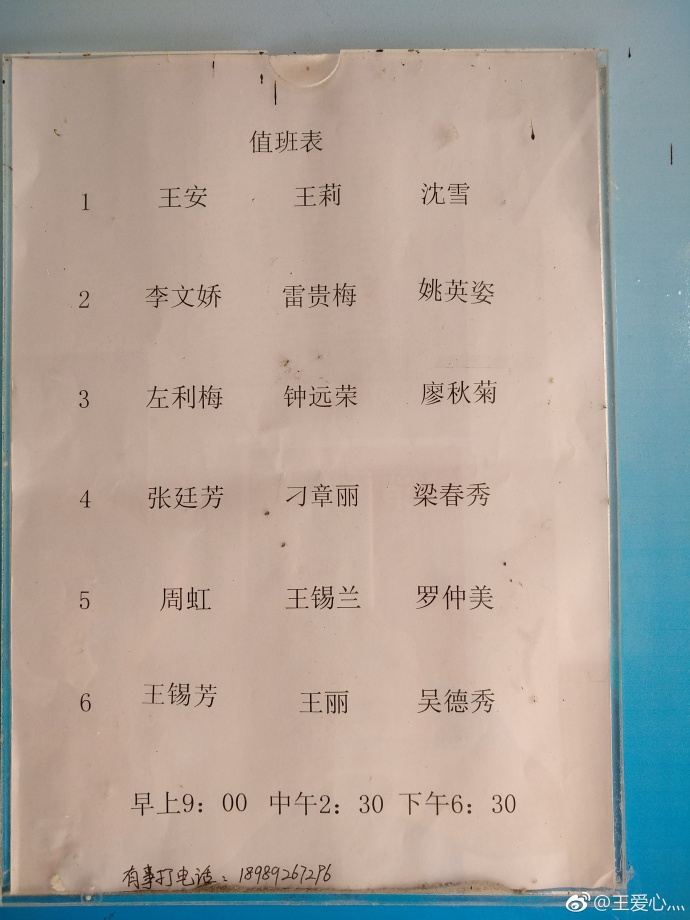 值班表
1 王安 王莉 沈雪
2 李文娇 雷贵梅 姚英姿
3 左利梅 钟远荣 廖秋菊
4 张廷芳 刁章丽 梁春秀
5 周虹 王锡兰 罗仲美
6 王锡芳 王丽 吴德秀
早上9：00 中午2：30 下午6：30
有事打电话：18989267296
@王爱心灬